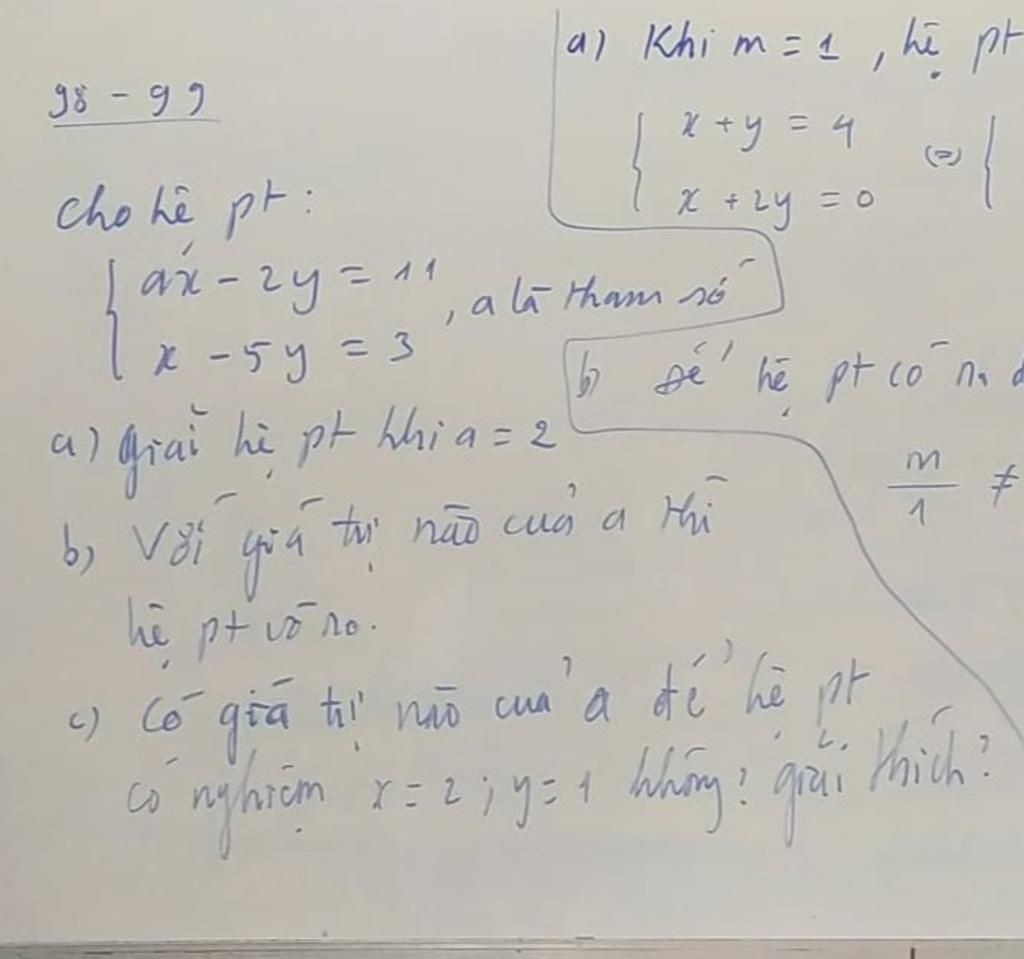 98 - 99
Cho hệ pt:
{ ax - 2y = 11
x - 5y = 3 , a là tham số
a) giải hệ pt khi a = 2
b) Với giá trị nào của a thì
hệ pt vô no.
c) Có giá trị nào của a để hệ pt
có nghiệm x = 2 ; y = 1 không? giải thích?
a) Khi m = 1 , hệ pt
{ x + y = 4
x + 2y = 0 (=) {
b) Để hệ pt có n
m/1 ≠